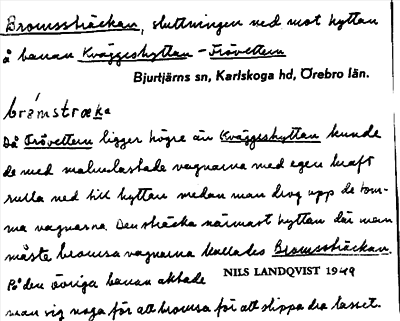 Bromssträckan, sluttningen ned mot hyttan
å banan Kväggeshyttan - Frövettern
Bjurtjärns sn, Karlskoga hd, Örebro län.
brómstrœka
Då Frövettern ligger högre än Kväggeshyttan kunde
de med malmlastade vagnarna med egen kraft
rulla ned till hyttan medan man drog upp de tom-
ma vagnarna. Den sträcka närmast hyttan där man
måste bromsa vagnarna kallades Bromssträckan.
På den övriga banan aktade
NILS LANDQVIST 1949
man sig noga för att bromsa för att slippa dra lasset.